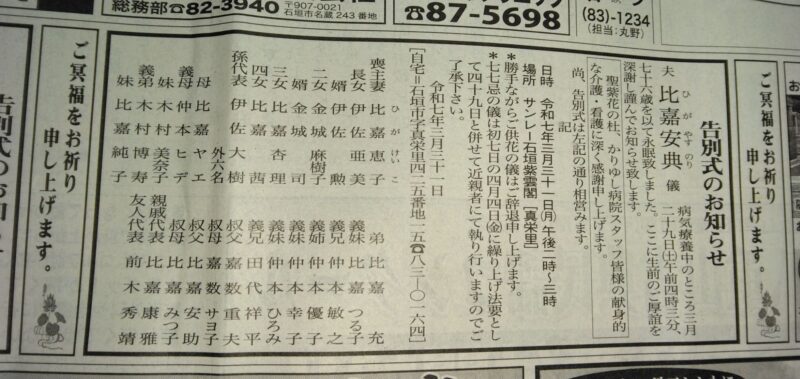 総務部☎82-3940
〒907-0021
石垣市名蔵243番地
☎87-5698
(83)-1234
(担当:丸野)
ご冥福をお祈り
申し上げます。
告別式のお知らせ
夫 比嘉安典 儀 病気療養中のところ三月
ひ が やすのり
二十九日㈯午前四時三分、
七十六歳を以て永眠致しました。ここに生前のご厚誼を
深謝し謹んでお知らせ致します。
聖紫花の杜、かりゆし病院スタッフ皆様の献身的
な介護・看護に深く感謝申し上げます。
尚、告別式は左記の通り相営みます。
記
日時 令和七年三月三十一日㈪午後二時〜三時
場所 サンレー石垣紫雲閣[真栄里]
*勝手ながらご供花の儀はご辞退申し上げます。
*七七忌の儀は初七日の四月四日㈮に繰り上げ法要とし
て四十九日と併せて近親者にて執り行いますのでご
了承下さい。
令和七年三月三十一日
[自宅=石垣市字真栄里四二五番地一五☎八三―〇一六四]
喪主妻 比嘉恵子
ひがけいこ
長女 伊佐亜美
婿 伊佐 勲
二女 金城麻樹子
婿 金城 司
三女 比嘉杏理
四女 比嘉 茜
孫代表 伊佐大樹
外六名
母 比嘉ヤエ
義母 仲本ヒデ
義弟 木村美奈子
木村博寿
妹 比嘉純子
弟 比嘉 充
妹 比嘉つる子
義兄 仲本敏之
義姉 仲本優子
義妹 仲本幸子
義妹 仲本ひろみ
義兄 田代祥平
叔父 嘉数重夫
叔母 嘉数サヨ子
叔父 比嘉安助
叔母 比嘉みつ子
親戚代表 比嘉康雅
友人代表 前木秀靖
ご冥福をお祈り
申し上げます。
告別式のお知